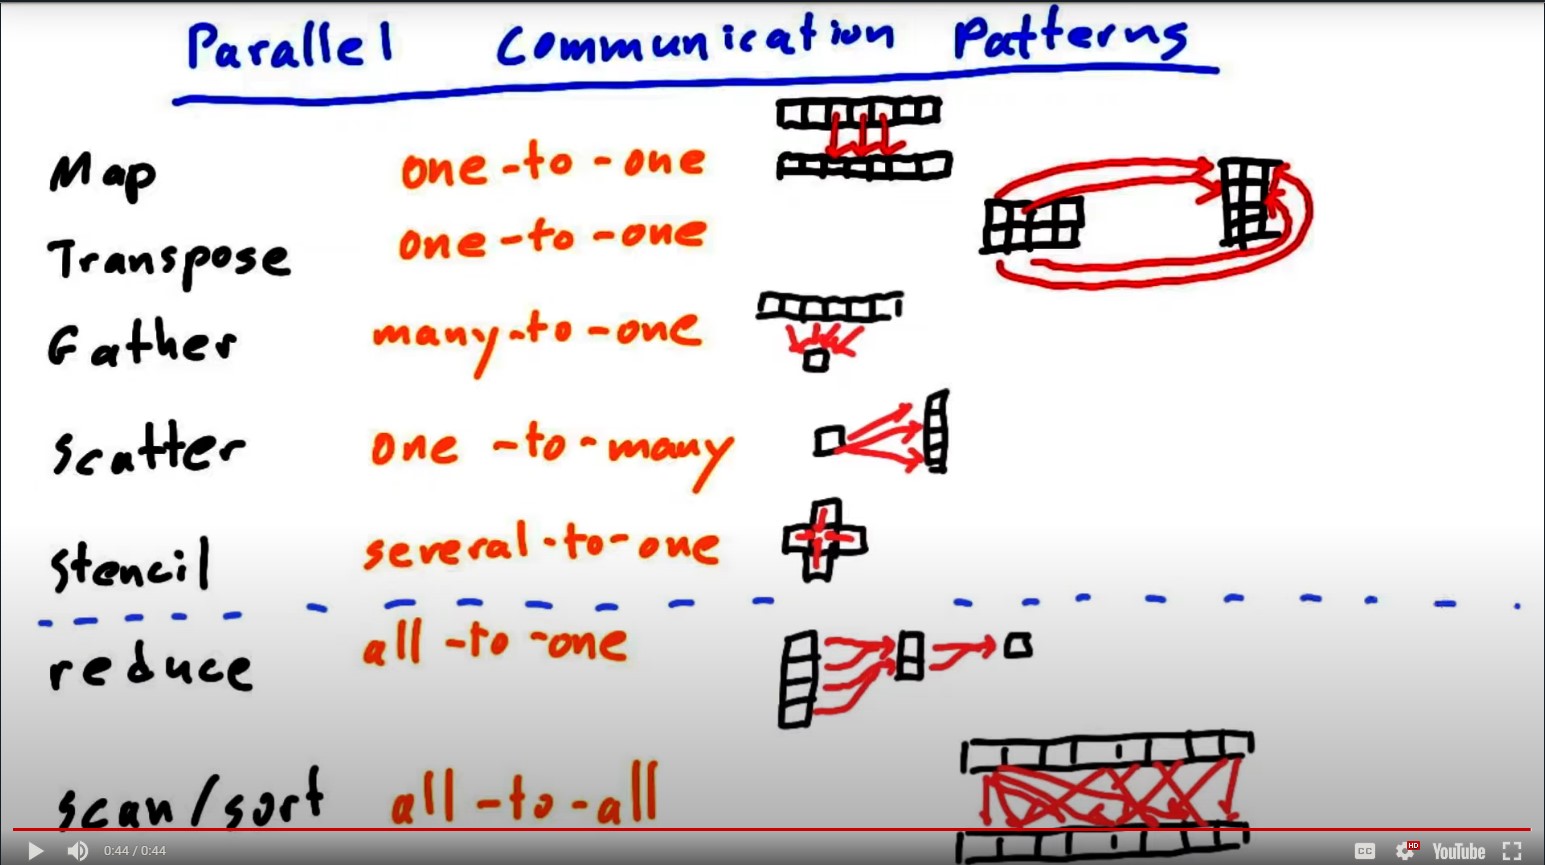 Parallel Communication Patterns
Map one-to-one
Transpose one-to-one
Gather many-to-one
Scatter one-to-many
Stencil several-to-one
reduce all-to-one
scan/sort all-to-all
0:44 / 0:44 CC HD YouTube